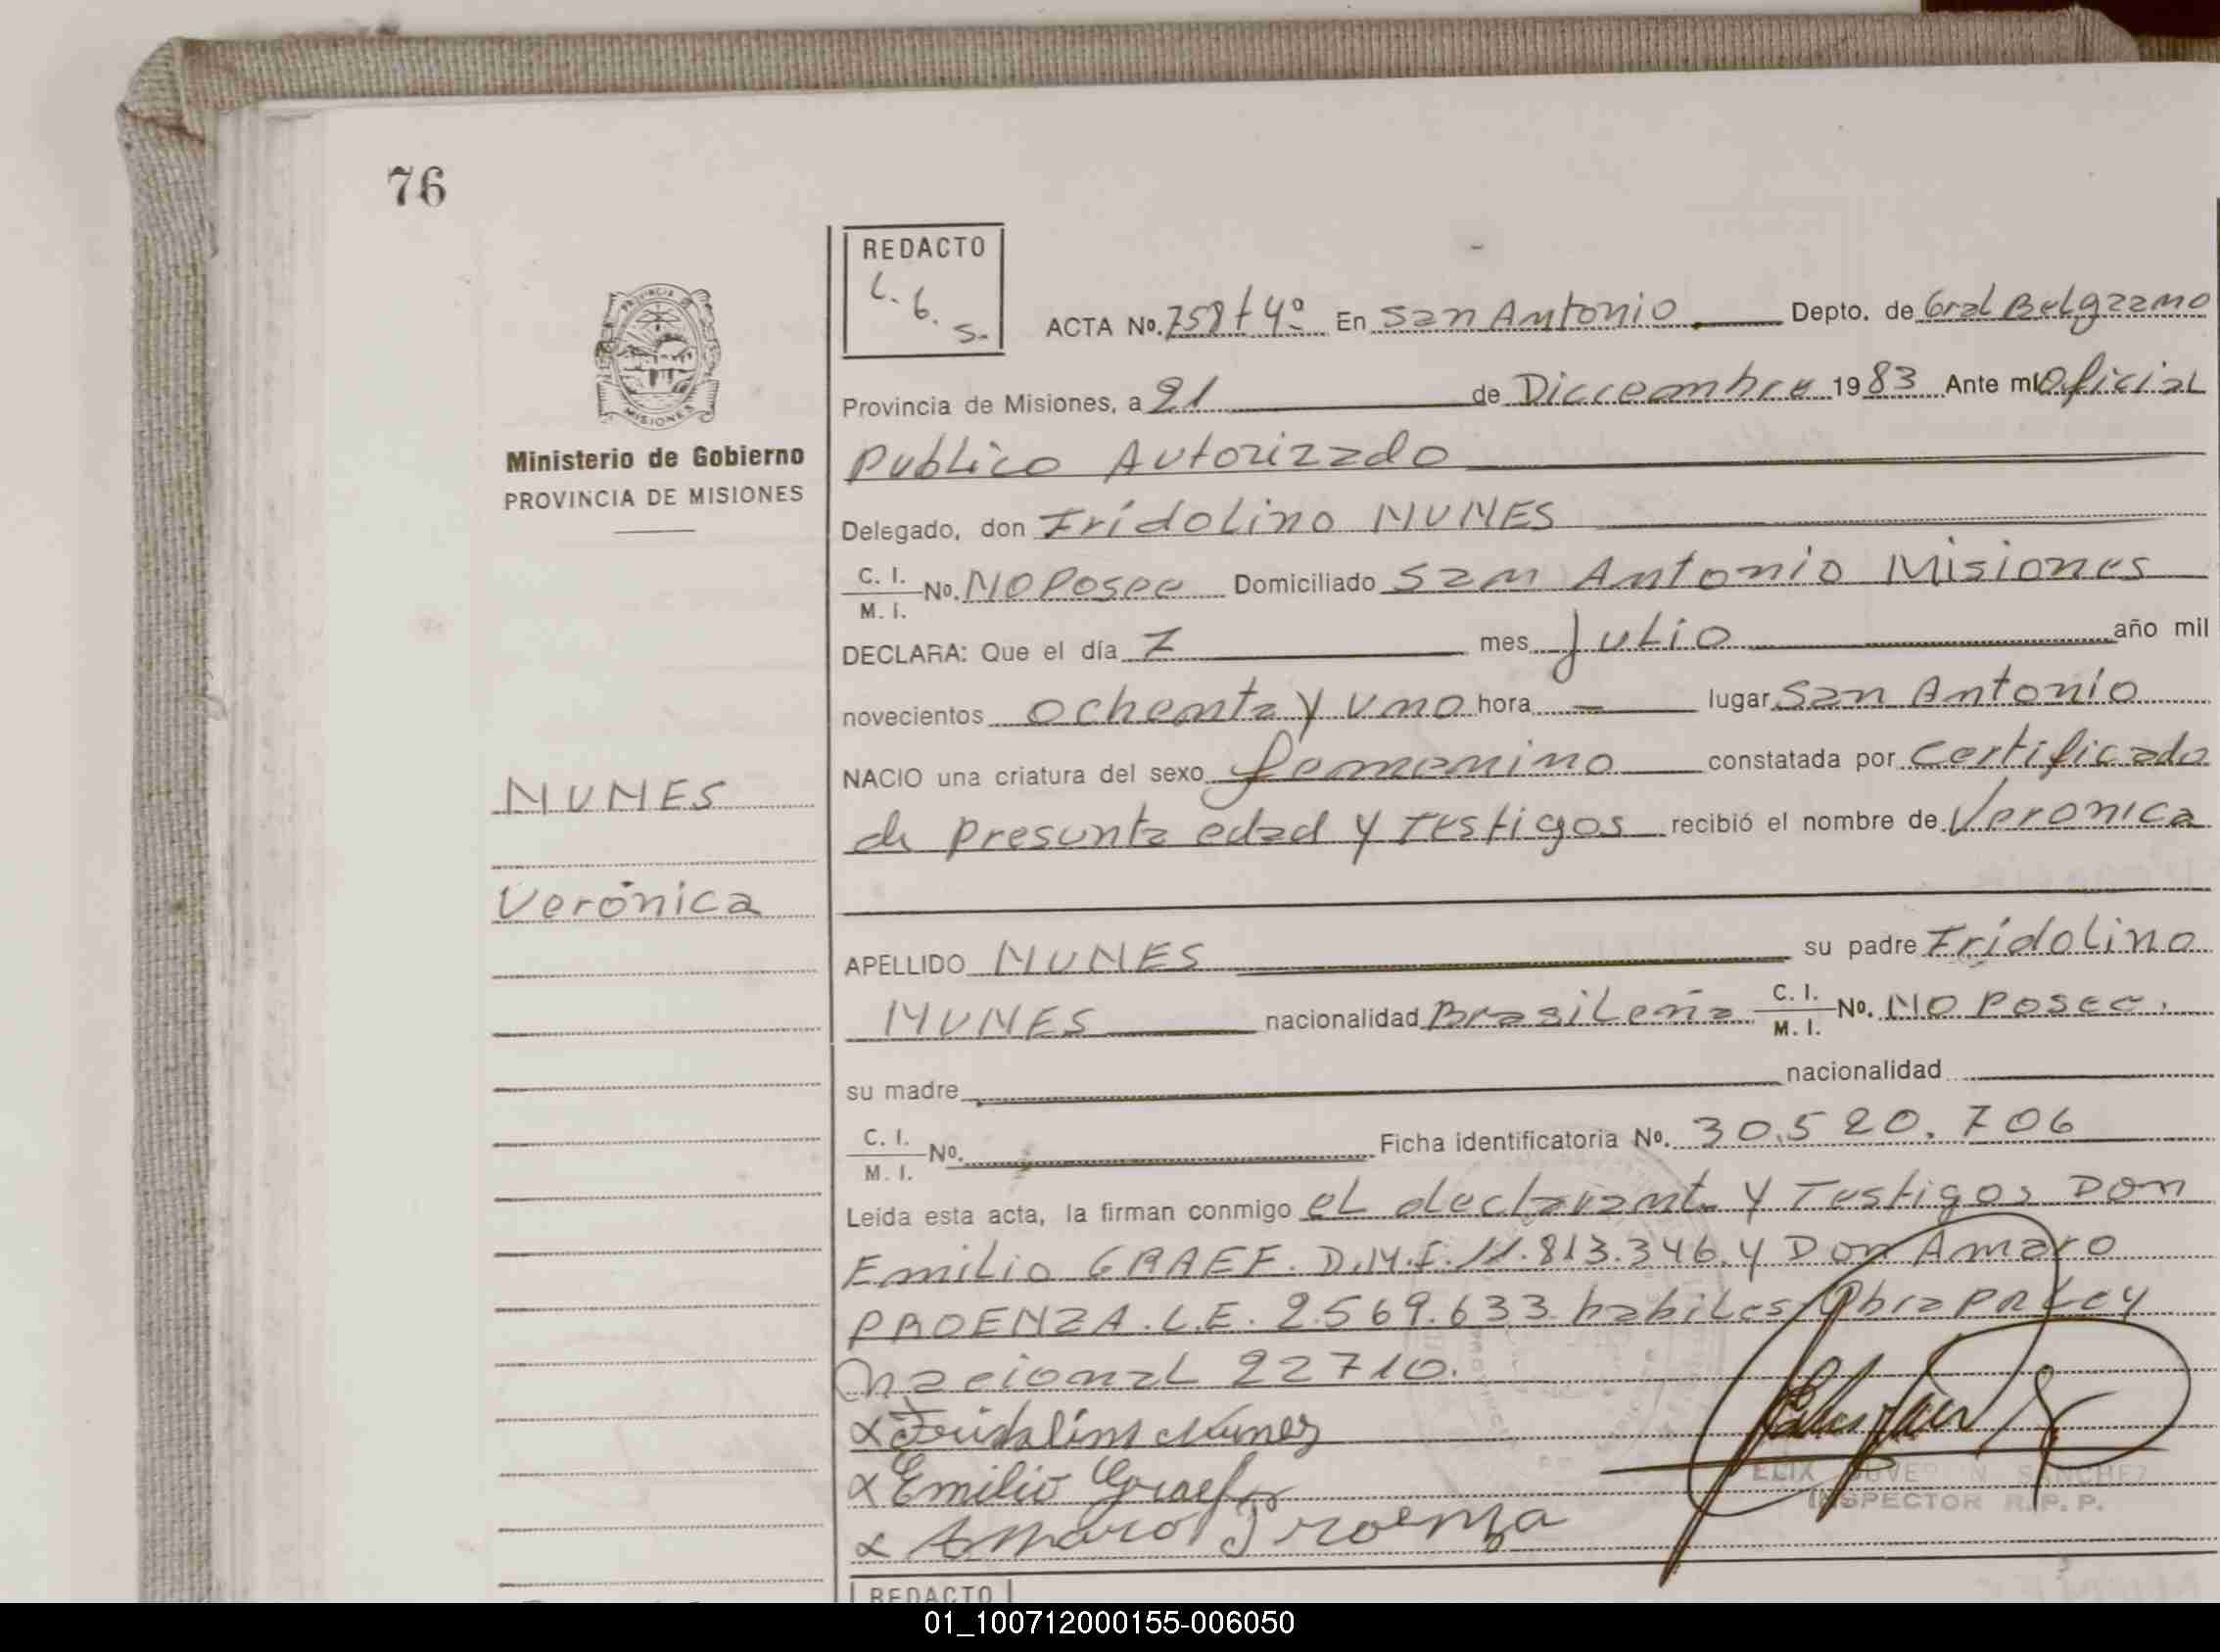 76
REDACTO
L. G. S.
PROVINCIA DE
MISIONES
Ministerio de Gobierno
PROVINCIA DE MISIONES
ACTA No. 758 t 4º En San Antonio. Depto. de Gral Belgrano
Provincia de Misiones, a 21 de Diccembre 1983 Ante mí Oficial
Publico Autorizado
Delegado, don Fridolino NUNES
C. I. / M. I. No. NO Posee Domiciliado San Antonio Misiones
DECLARA: Que el día 7 mes Julio año mil
novecientos ochenta y uno hora — lugar San Antonio
NACIO una criatura del sexo femenino constatada por Certificado
de presunta edad y testigos recibió el nombre de Veronica
NUNES
Verónica
APELLIDO NUNES su padre Fridolino
NUNES nacionalidad Brasileña C. I. / M. I. No. NO Posee.
su madre nacionalidad
C. I. / M. I. No. Ficha identificatoria No. 30.520.706
Leída esta acta, la firman conmigo el declarante y Testigos Don
Emilio GRAEF. D.N.I. 11.813.346. y Don Amaro
PROENZA. L.E. 2.569.633 habiles Ley
Nacional 22710.
x Fridolino Nunes
x Emilio Graef
x Amaro Proenza
SANCHEZ
INSPECTOR R. P. P.
REDACTO
01_100712000155-006050